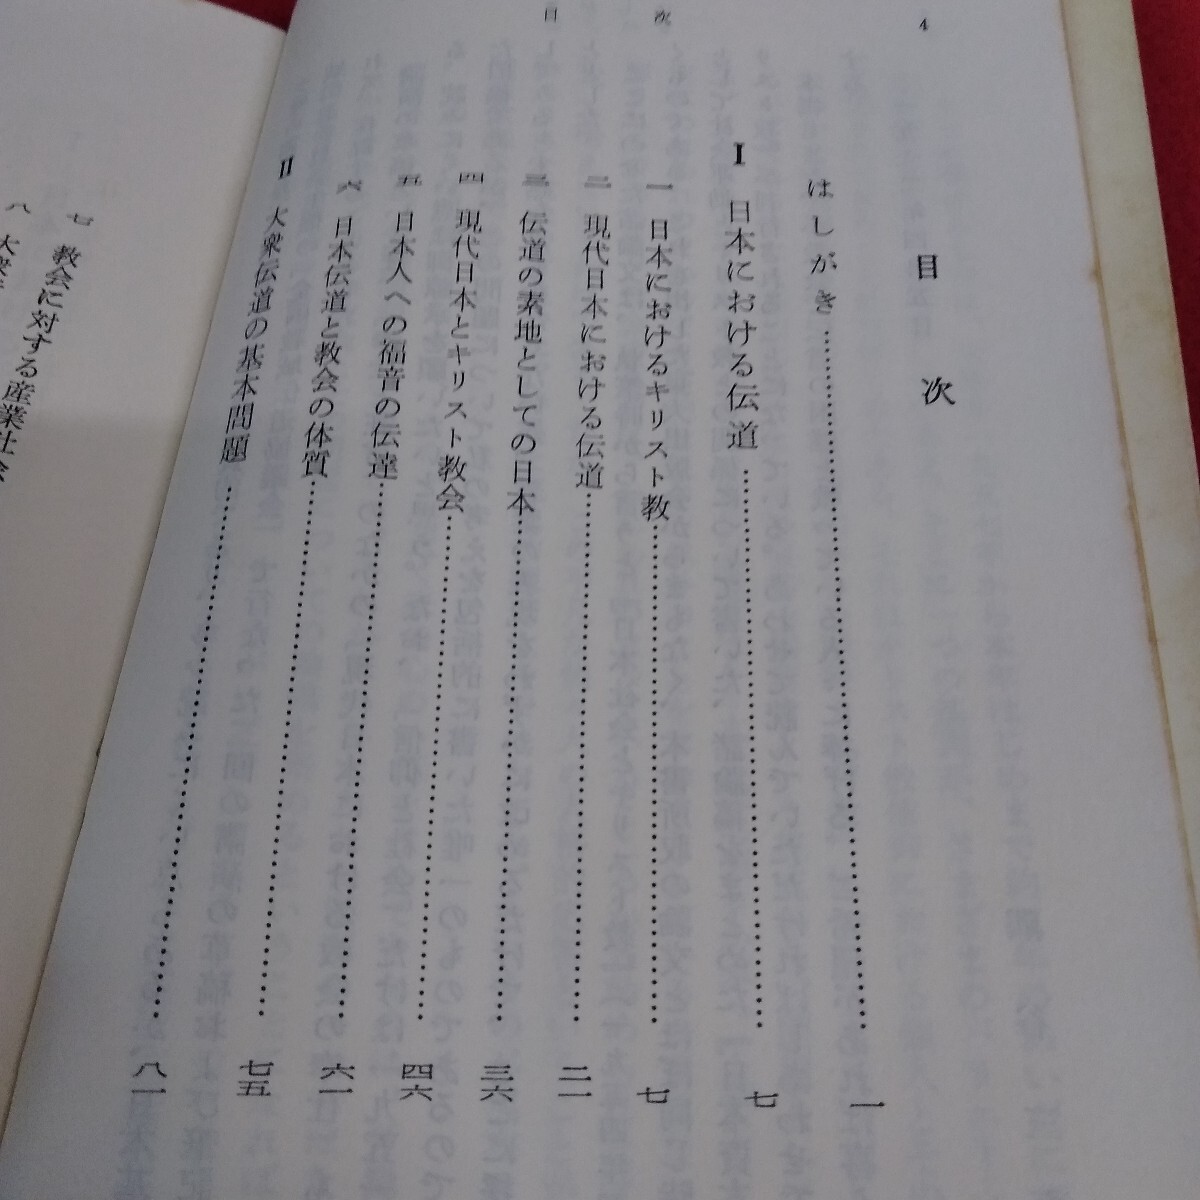 4
目次
目次
はしがき…………一
I 日本における伝道…………七
一 日本におけるキリスト教…………七
二 現代日本における伝道…………二一
三 伝道の素地としての日本…………三六
四 現代日本とキリスト教会…………四六
五 日本人への福音の伝達…………六一
六 日本伝道と教会の体質…………七五
II 大衆伝道の基本問題…………八一
七 教会に対する産業社会
八 大衆